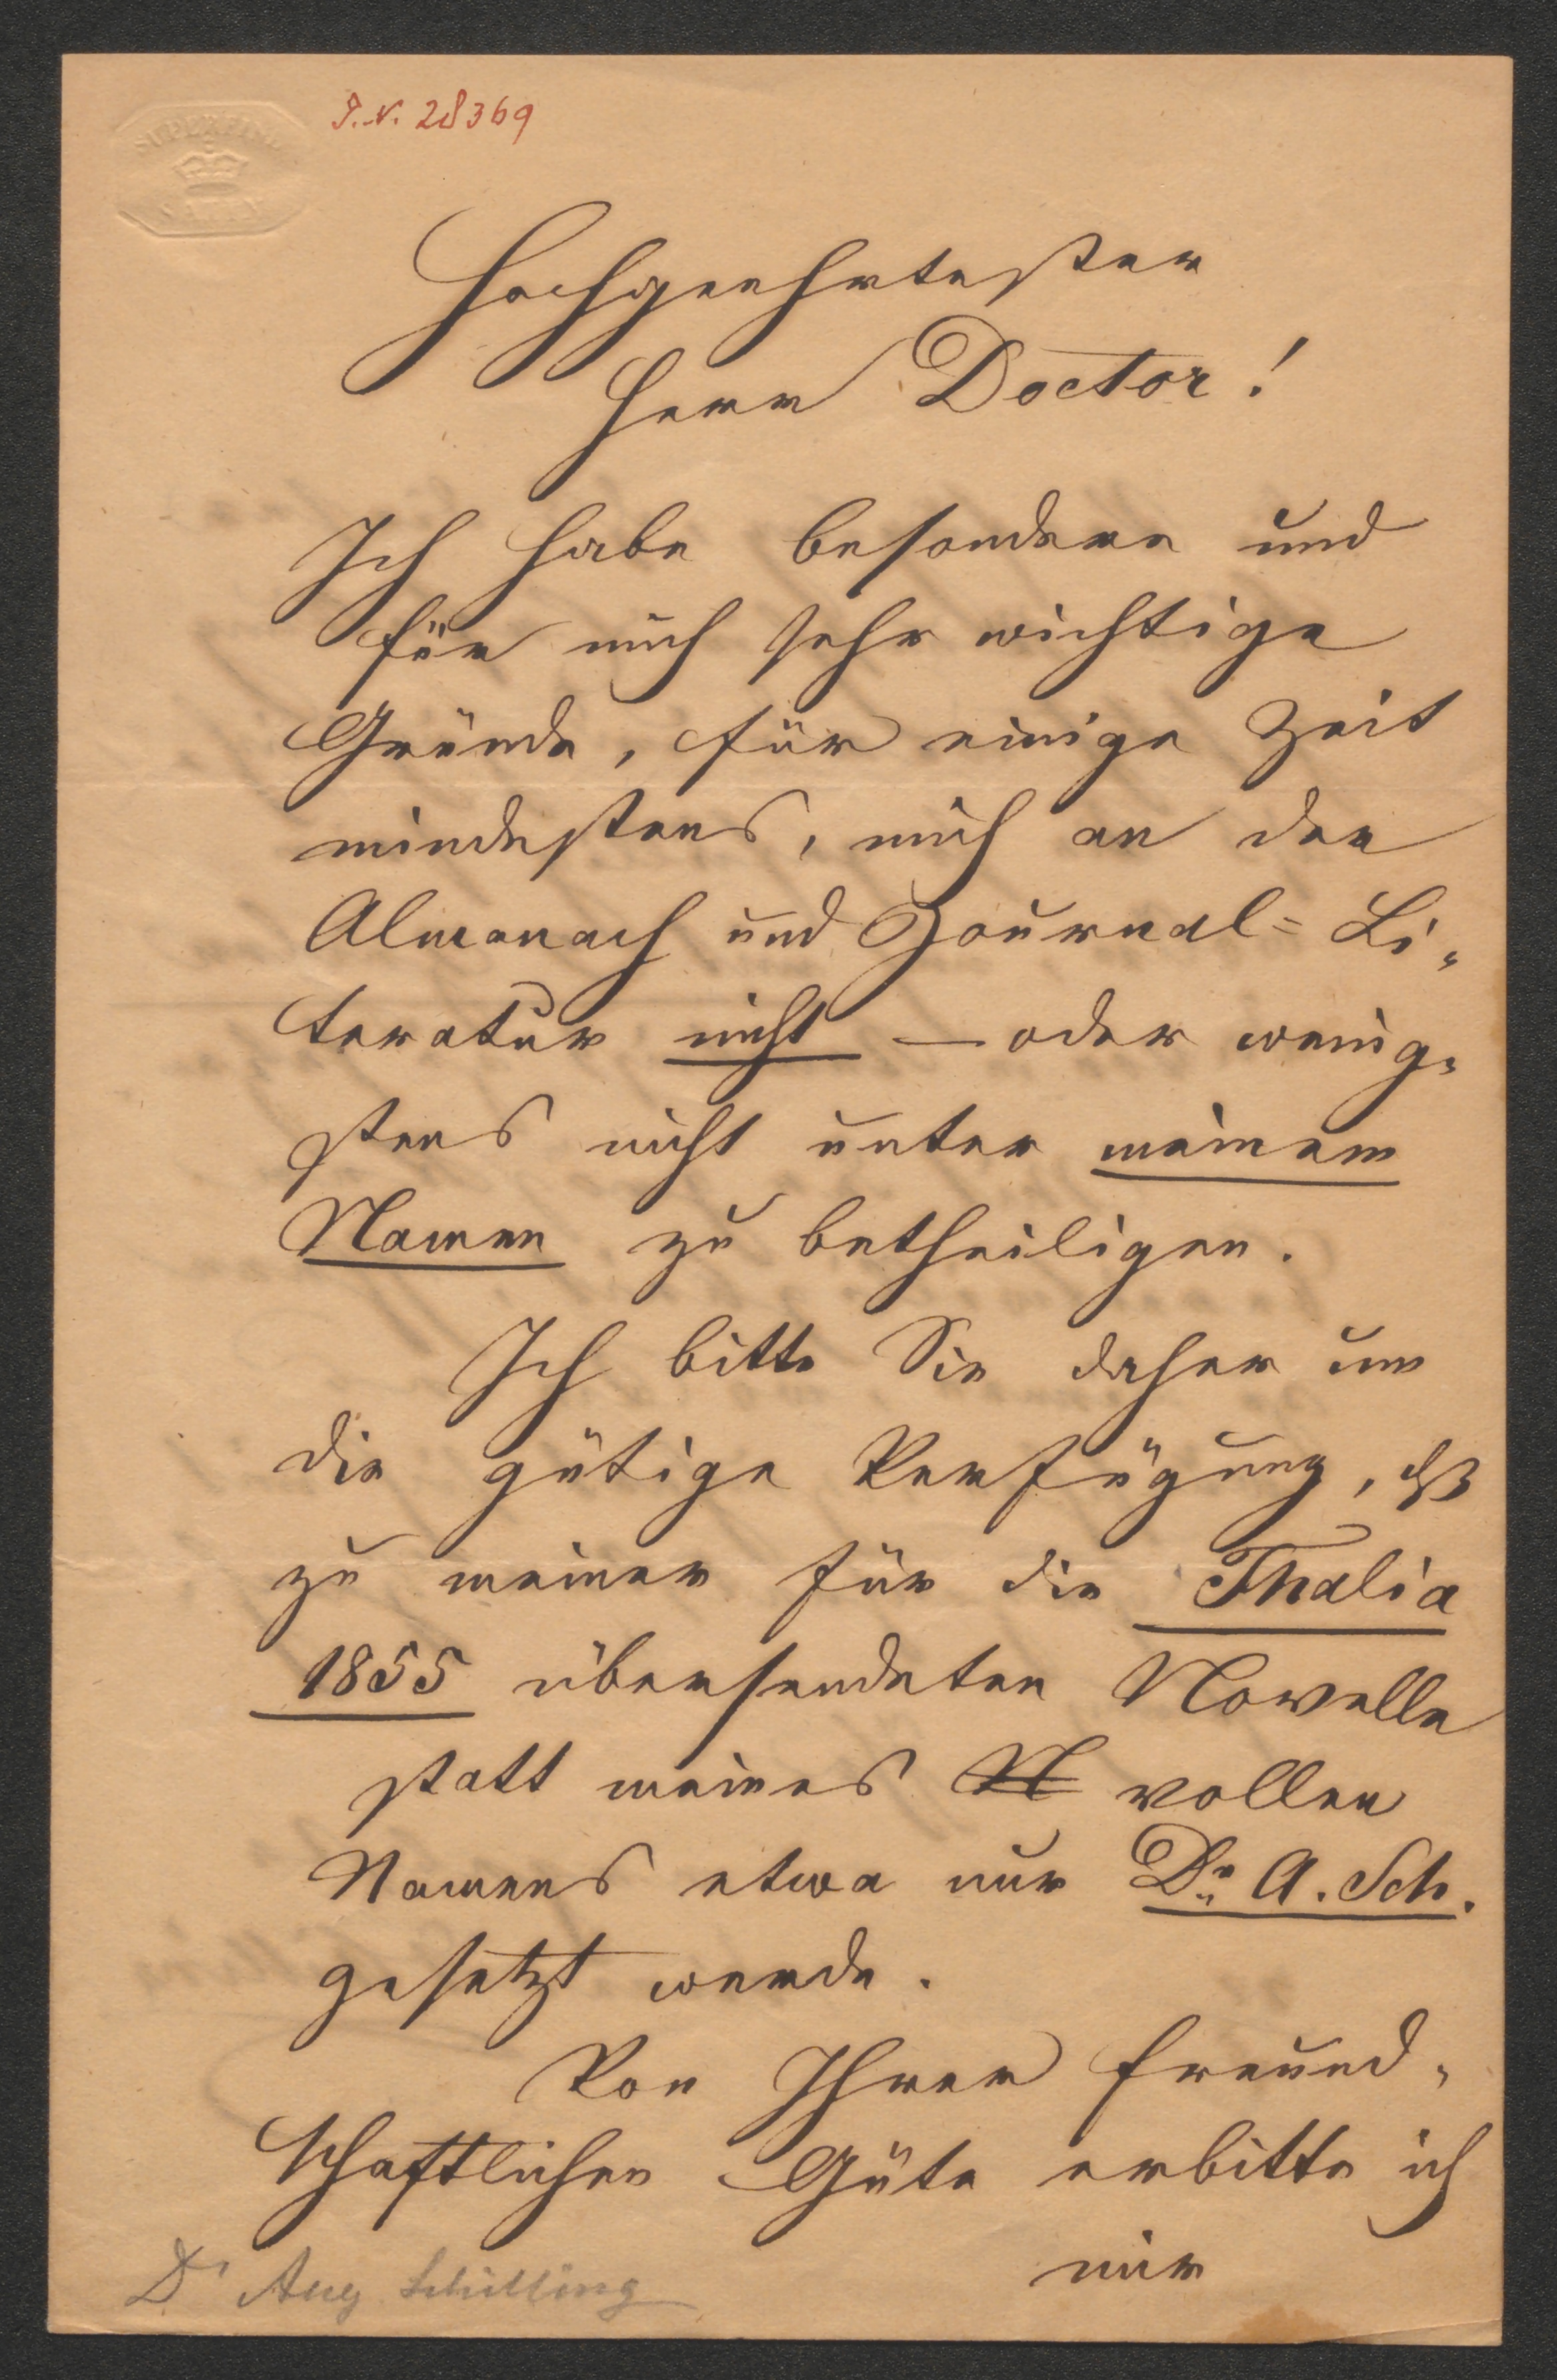 SUPERFINE
SATIN
I. N. 28369
Hochgeehrtester
Herr Doctor!
Ich habe besondere und
für mich sehr wichtige
Gründe, für einige Zeit
mindestens, mich an der
Almanach und Journal= Li„
teratur nicht — oder wenig„
stens nicht unter meinem
Namen zu betheiligen.
Ich bitte Sie daher um
die gütige Verfügung, dß
zu meiner für die Thalia
1855 übersendeten Novelle
statt meines N vollen
Namens etwa nur Dr. A. Sch.
gesetzt werde.
Von Ihrer freund„
schaftlichen Güte erbitte ich
mir
Dr Aug Schilling